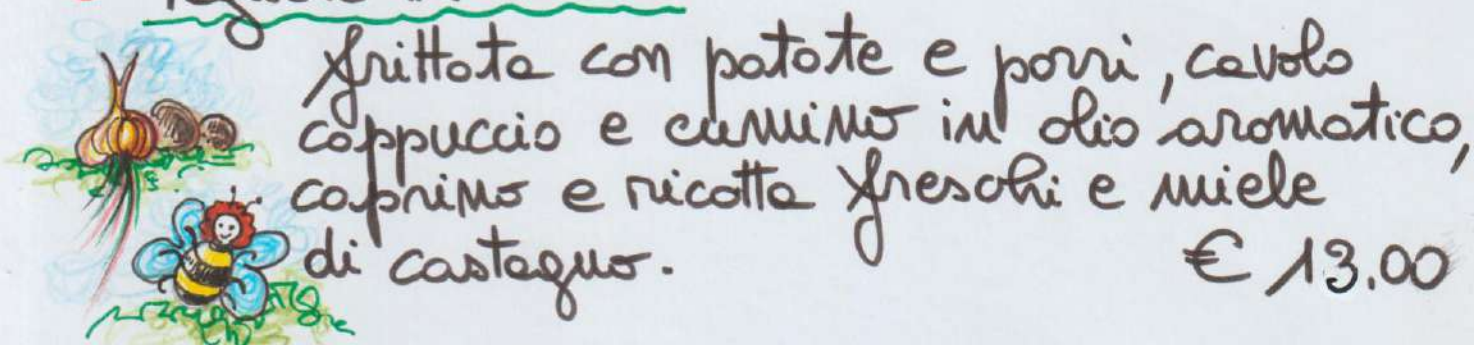 frittata con patate e porri, cavolo
cappuccio e cumino in olio aromatico,
caprino e ricotta freschi e miele
di castagno.
€ 13.00